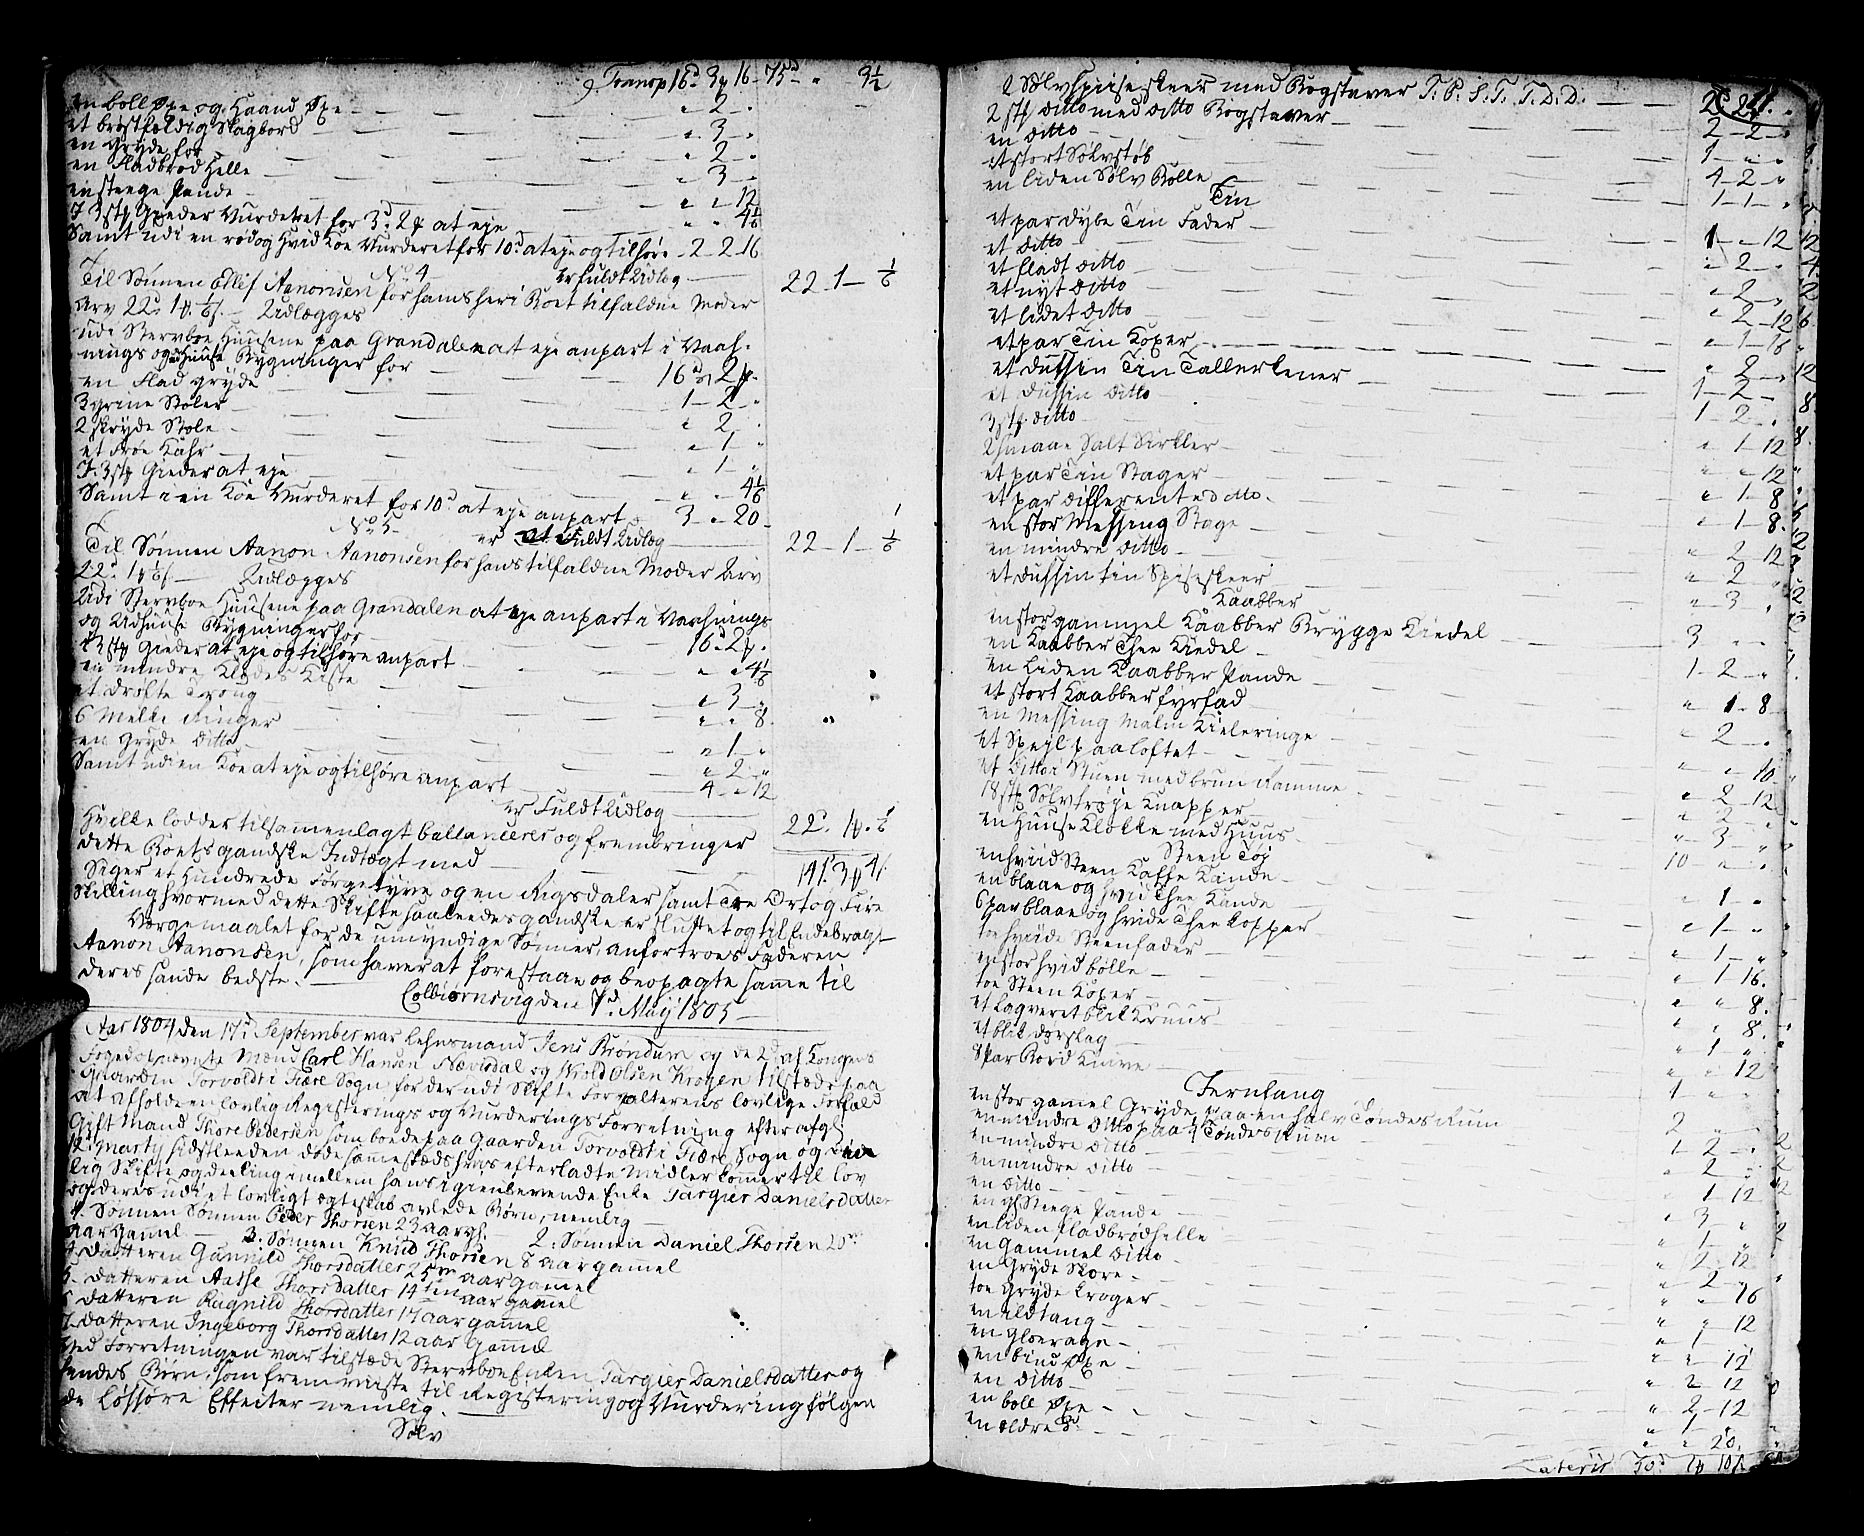 Transp 16d 3# 16 - 75d „ 3½
en boll Øxe og Haand Øxe — „ 2 „
et brøstfældig Slagbord — „ 3 „
en Gryde for — „ 2 „
en Fladbrød Helle — „ 3 „
en steege Pande — „ „ 12
I 3 stk Gieder Vurderet for 3d 2# at eje — „ „ 4⅙
Samt udi en rød og Hvid Koe Vurderet for 10d at eje og tilhøre — 2 - 2 - 16
er fuldt Udlog — 22 - 1 - ⅙
No 4
Til Sønnen Ellef Aanonsen for hans her i Boet tilfaldne Moder
Arv 22d 1# ⅙s — Udlægges
udi Stervboe Huusene paa Grandalen at eje anpart i Vaah-
nings og Udhuuse Bygninger for — 16d 2#
en Flad gryde — 1 - 2 „
3 grine Stoler — „ 2 „
2 skryde Stole — „ 1 „
et Frøe Kahr — „ 1 „
I 3 stk Gieder at eje — „ „ 4⅙
Samt i en Koe Vurderet for 10d at eje anpart — 3 „ 20
er Fuldt Udlog — 22 - 1 - ⅙
No 5
Til Sønnen Aanon Aanonsen for hans tilfaldne Moder Arv
22d 1# ⅙s — Udlægges
Udi Stervboe Huusene paa Grandalen at eje anpart i Vaahnings
og Udhuuse Bygninger for — 16d 2#
i 3 stk Gieder at eje og tilhøre anpart — „ „ 4⅙
en mindre Klædes Kiste — „ 3 „
et drølte Troug — „ „ 8
6 Melke Ringer — „ 1 „
en Gryde ditto — „ 2 „
Samt udi en Koe at eje og tilhøre anpart — 4 „ 12
er Fuldt Udlog — 22d 1# ⅙
Hvilke lodder tilsammenlagt ballancerer og frembringer
dette Boets gandske Indtægt med — 191d 3# 4s
Siger et Hundrede Førgetyve og en Rigsdaler samt Tre Ort og Fire
Skilling hvormed dette Skifte saaleedes gandske er sluttet og til Endebragt
Værgemaalet for de umyndige Sønner, anfortroes Faderen
Aanon Aanonsen, som haver at forestaae og beopagte samme til
deres sande bedste.
Colbiørnsvig den 7d May 1805
Aar 1804 den 17d September var Lehnsmand Jens Brøndum og de 2d af Kongens
Foged opnevnte Mænd Carl Hansen Nævisdal og Nrold Olsen Krogen tilstæde paa
Gaarden Torvoldt i Fiære Sogn for der udi Skifte Forvalterens lovlige Forfald
at afholde en lovlig Registerings og Vurderings Forretning efter afg.
Gift Mand Thore Pedersen som boede paa Gaarden Torvoldt i Fiære Sogn og den
12 Marty sidstleeden døde sammestæds hvis efterladte Midler kommer til lov
lig Skifte og deeling imellem hans igienlevende Enke Targier Danielsdatter
og deres udi et lovligt ægteskab avlede Børn, nemlig
1. Sønnen Sønnen Peder Thorsen 23 aar gl. 2. Sønnen Daniel Thorsen 20
aar gammel — 3. Sønnen Knud Thorsen 8 aar gamel
4 Datteren Gunnild Thorsdatter 25 aar gamel
5. Datteren Aasse Thorsdatter 14 aar gammel
6 Datteren Ragnild Thorsdatter 17 aar gammel
7. Datteren Ingeborg Thorsdatter 12 aar Gammel
Ved Forretningen var tilstæde Stervboe Enken Targier Danielsdatter og
hendes Børn, som fremviiste til Registering og Vurdering følgen
de løssøre Effecter nemlig.
Sølv
2 Sølv Spiiseskeer med Bogstaver T. P. S. T. T. D. D. — 2
2 stk ditto med ditto Bogstaver — 2 - 2 „
en ditto — 1 „ „
et stort Sølvstøb — 4 - 2 „
en liden Sølv Bolle — 1 - 1 „
Tin
et par dybe Tin Fader — 1 „ 12
et ditto — „ 2 „
et fladt ditto — „ 2 „
et nyt ditto — „ 2 - 12
et lidet ditto — „ 1 - 16
et par Tin Koper — „ 2 „
et dussin Tin Tallerkener — 1 - 2 „
et dussin ditto — 1 - 2 „
3 stk ditto — „ 1 - 12
2 smaae Salt Sirkler — „ „ 12
et par Tin Stager — „ 1 - 8
et par differente ditto — „ 1 - 8
en stor Messing Stage — „ 2 - 12
en mindre ditto — „ 2 „
et dussin tin Spiseskeer — „ 3 „
Kaabber
en stor gammel Kaabber Brygge Kiedel — 3 „ „
en Kaabber Thee Kiedel — 1 - 2 „
en liden Kaabber Pande — „ 1 - 8
et stort Kaabber fyrfad — „ 2 „
en Messing Malm Kieleringe — „ „ 10
et Spejl paa loftet — „ 2 - 12
et Ditto i Stuen med brun Ramme — „ 2 „
18 stk Sølv trøje Knapper — „ 3 „
en Huuse Klokke med Huus — 10 „ „
Steen Tøj
en hviid Steen Kaffe Kande — „ 1 „
en blaae og hvid Thee Kande — „ 1 „
6 par blaae og hvide Thee Kopper — „ 1 „
toe hviide Steenfader — „ 1 - 16
en stor hvid bolle — „ „ 8
toe Steen Koper — „ „ 8
et lagveret blik Kruus — „ 1 „
et blik dørslag — „ „ 12
8 par Bord Knive — 1 „ „
Jernfang
en stor gamel Gryde paa en halv Tøndes Rum — 2 „ „
en mindre Ditto paa ¼ Tøndes Rum — 1 - 2 „
en mindre ditto — „ 2 „
en mindre ditto — „ 1 - 12
en ditto — „ 3 „
en gl Steege Pande — „ 1 „
en liden Fladbrødhelle — „ 2 - 12
en Gammel ditto — „ 2 „
en Gryde Skore — „ „ 16
toe Gryde Kroger — „ „ 12
en ildtang — „ 1 „
en Gloerage — „ „ 12
en biiul Øxe — „ 2 - 12
en ditto — „ 2 - 12
en boll Øxe — „ 1 „
en ældre do — „ „ 20
Lateris 50d 1# 10s